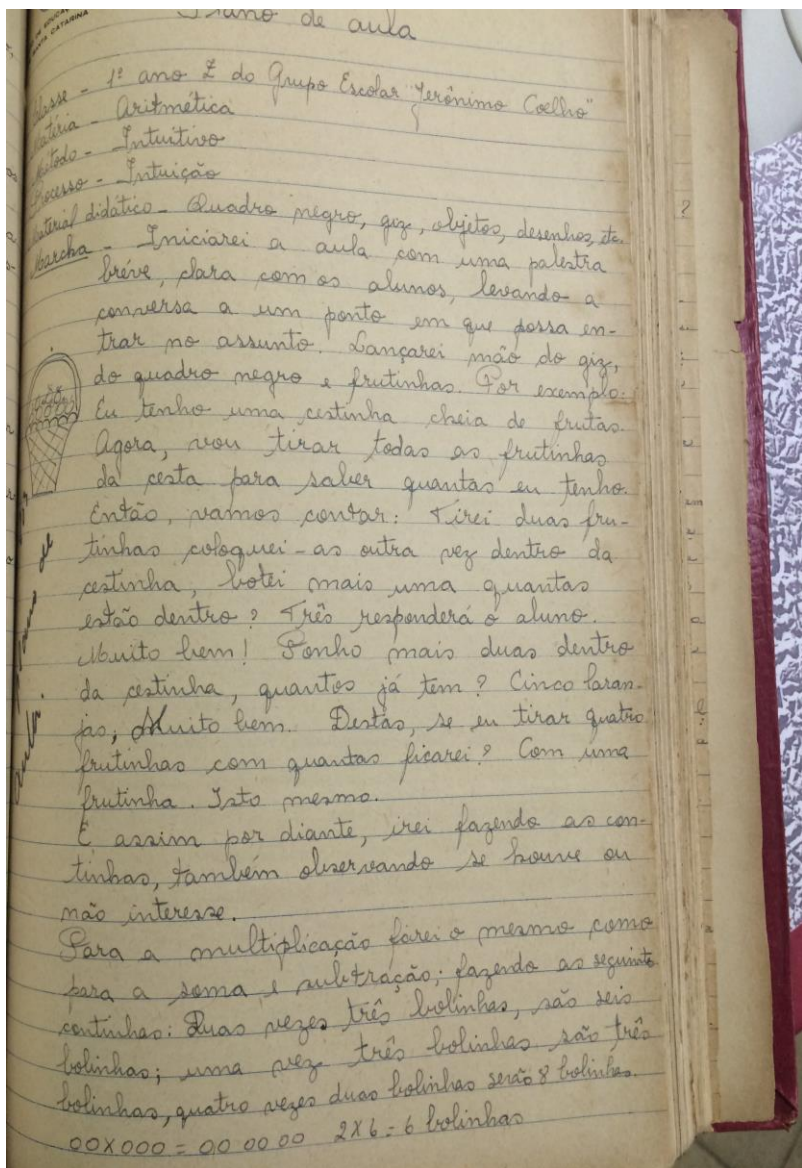 DE EDUCA
SANTA CATARINA
Plano de aula
Classe - 1º ano Z do Grupo Escolar "Jerônimo Coelho"
Matéria - Aritmética
Método - Intuitivo
Processo - Intuição
Material didático - Quadro negro, giz, objetos, desenhos, etc.
Marcha - Iniciarei a aula com uma palestra
bréve, clara com os alunos, levando a
conversa a um ponto em que possa en-
trar no assunto. Lançarei mão do giz,
do quadro negro e frutinhas. Por exemplo:
Eu tenho uma cestinha cheia de frutas.
Agora, vou tirar todas as frutinhas
da cesta para saber quantas eu tenho.
Então, vamos contar: Tirei duas fru-
tinhas coloquei-as outra vez dentro da
cestinha, botei mais uma quantas
estão dentro? Três responderá o aluno.
Muito bem! Ponho mais duas dentro
da cestinha, quantos já tem? Cinco laran-
jas, Muito bem. Destas, se eu tirar quatro
frutinhas com quantas ficarei? Com uma
frutinha. Isto mesmo.
E assim por diante, irei fazendo as con-
tinhas, também observando se houve ou
não interesse.
Para a multiplicação farei o mesmo como
para a soma e subtração; fazendo as seguinte
continhas: Duas vezes três bolinhas, são seis
bolinhas; uma vez três bolinhas são três
bolinhas, quatro vezes duas bolinhas serão 8 bolinhas.
00X000 = 00 00 00 2X6 = 6 bolinhas